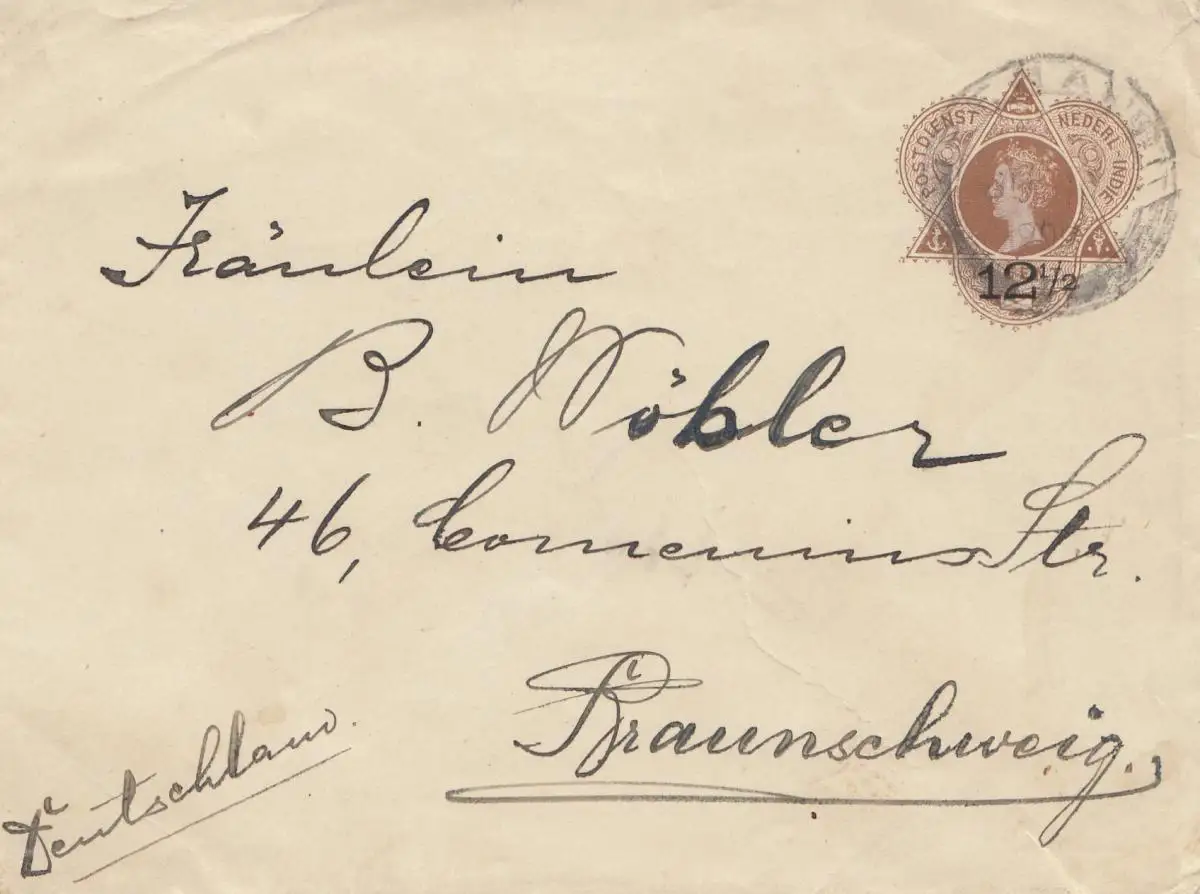 POSTDIENST NEDERL-INDIE
12 1/2
Fräulein
B. Wöhler
46, Comenius Str.
Braunschweig.
Deutschland.